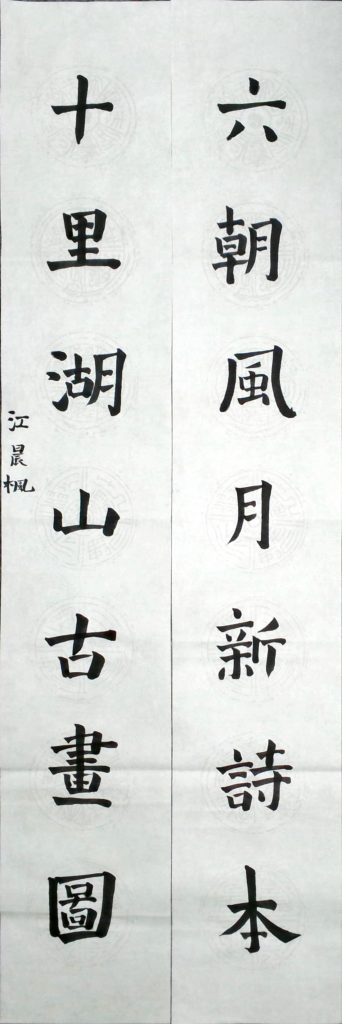 六朝風月新詩本
十里湖山古畫圖
江晨楓